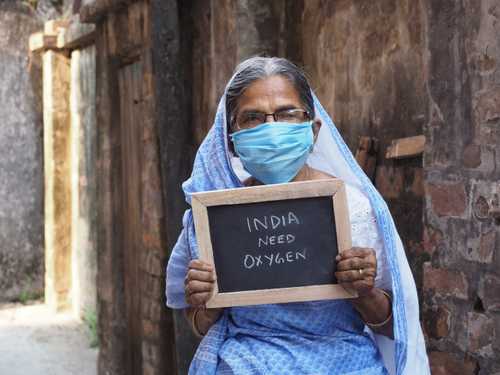 INDIA
NEED
OXYGEN